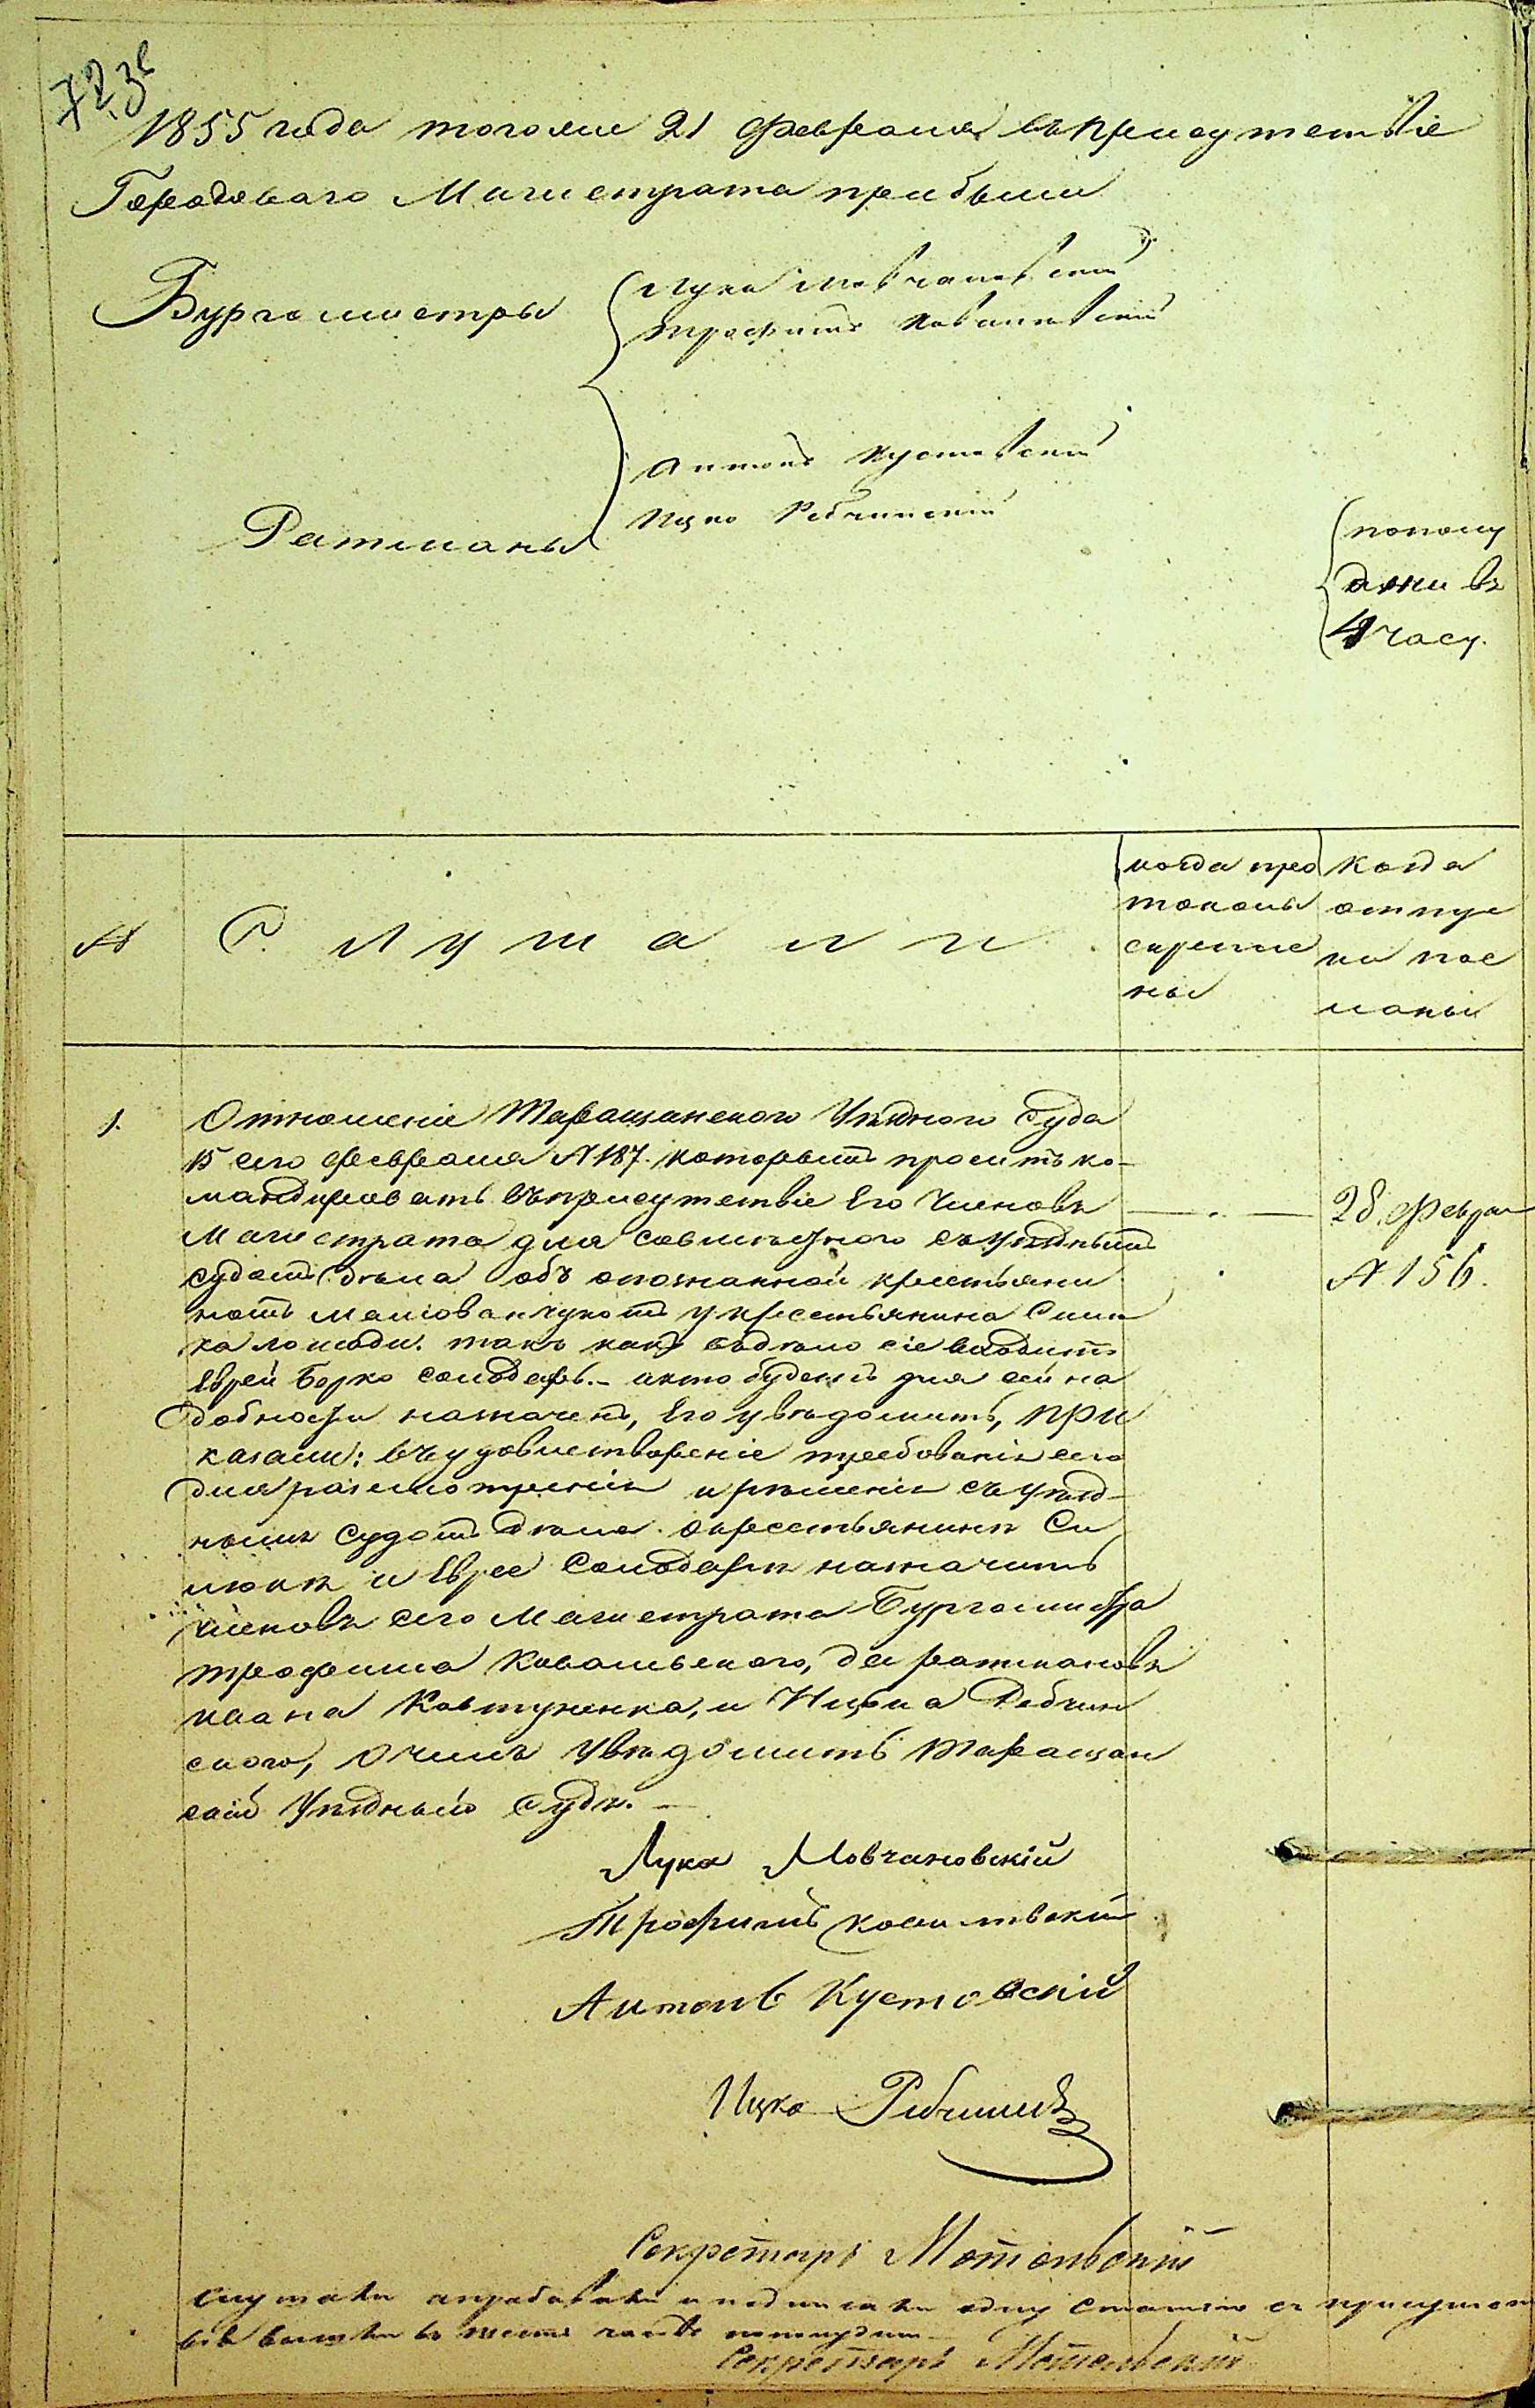 1855 года тогоже 21 Февраля въ присутствіе
Городоваго Магистрата прибыли
Бургомистры
Лука Мовчановскій
Трофимъ Ковалевскій
Антонъ Кустовскій
Ицко Рабчинскій
Ратманы
пополу
дни въ
4 часу.
№
Слушали
когда про
токолы
скрепле
ны
когда
отпус
ки пос
ланы
1.
Отношеніе Таращанскаго Уѣзднаго Суда
15 сего февраля №187. которымъ проситъ ко-
мандировать въ присутствіе Его Членовъ
Магистрата для совмѣстнаго съ Уѣзднымъ
судомъ дѣла объ опознанной крестьяни
номъ у крестьянина Симю
ка лошади. такъ какъ въ дѣло сіе входитъ
Еврей Борко Солодарь.- и кто будетъ для сей на
добности назначенъ, Его увѣдомить, при
казали: въ удовлетвореніе требованія сего
для разсмотренія и рѣшенія съ уѣзд-
нымъ Судомъ дѣла о крестьянинѣ Си
мюкѣ и Еврее Солодарѣ назначить
членовъ сего Магистрата Бургомистра
Трофима Ковальскаго, да ратмановъ
Ивана Ковтуненка, и Ицка Рабчин
скаго, о чемъ увѣдомить Таращан
скій Уѣздный Судъ.-
28 Феврал
№ 156.
Лука Мовчановскій
Трофимъ
Антонъ Кустовскій
Ицко
Секретарь
Слушали и подписали одну статью съ присутст
вія вышли въ часовъ пополудни
Секретарь